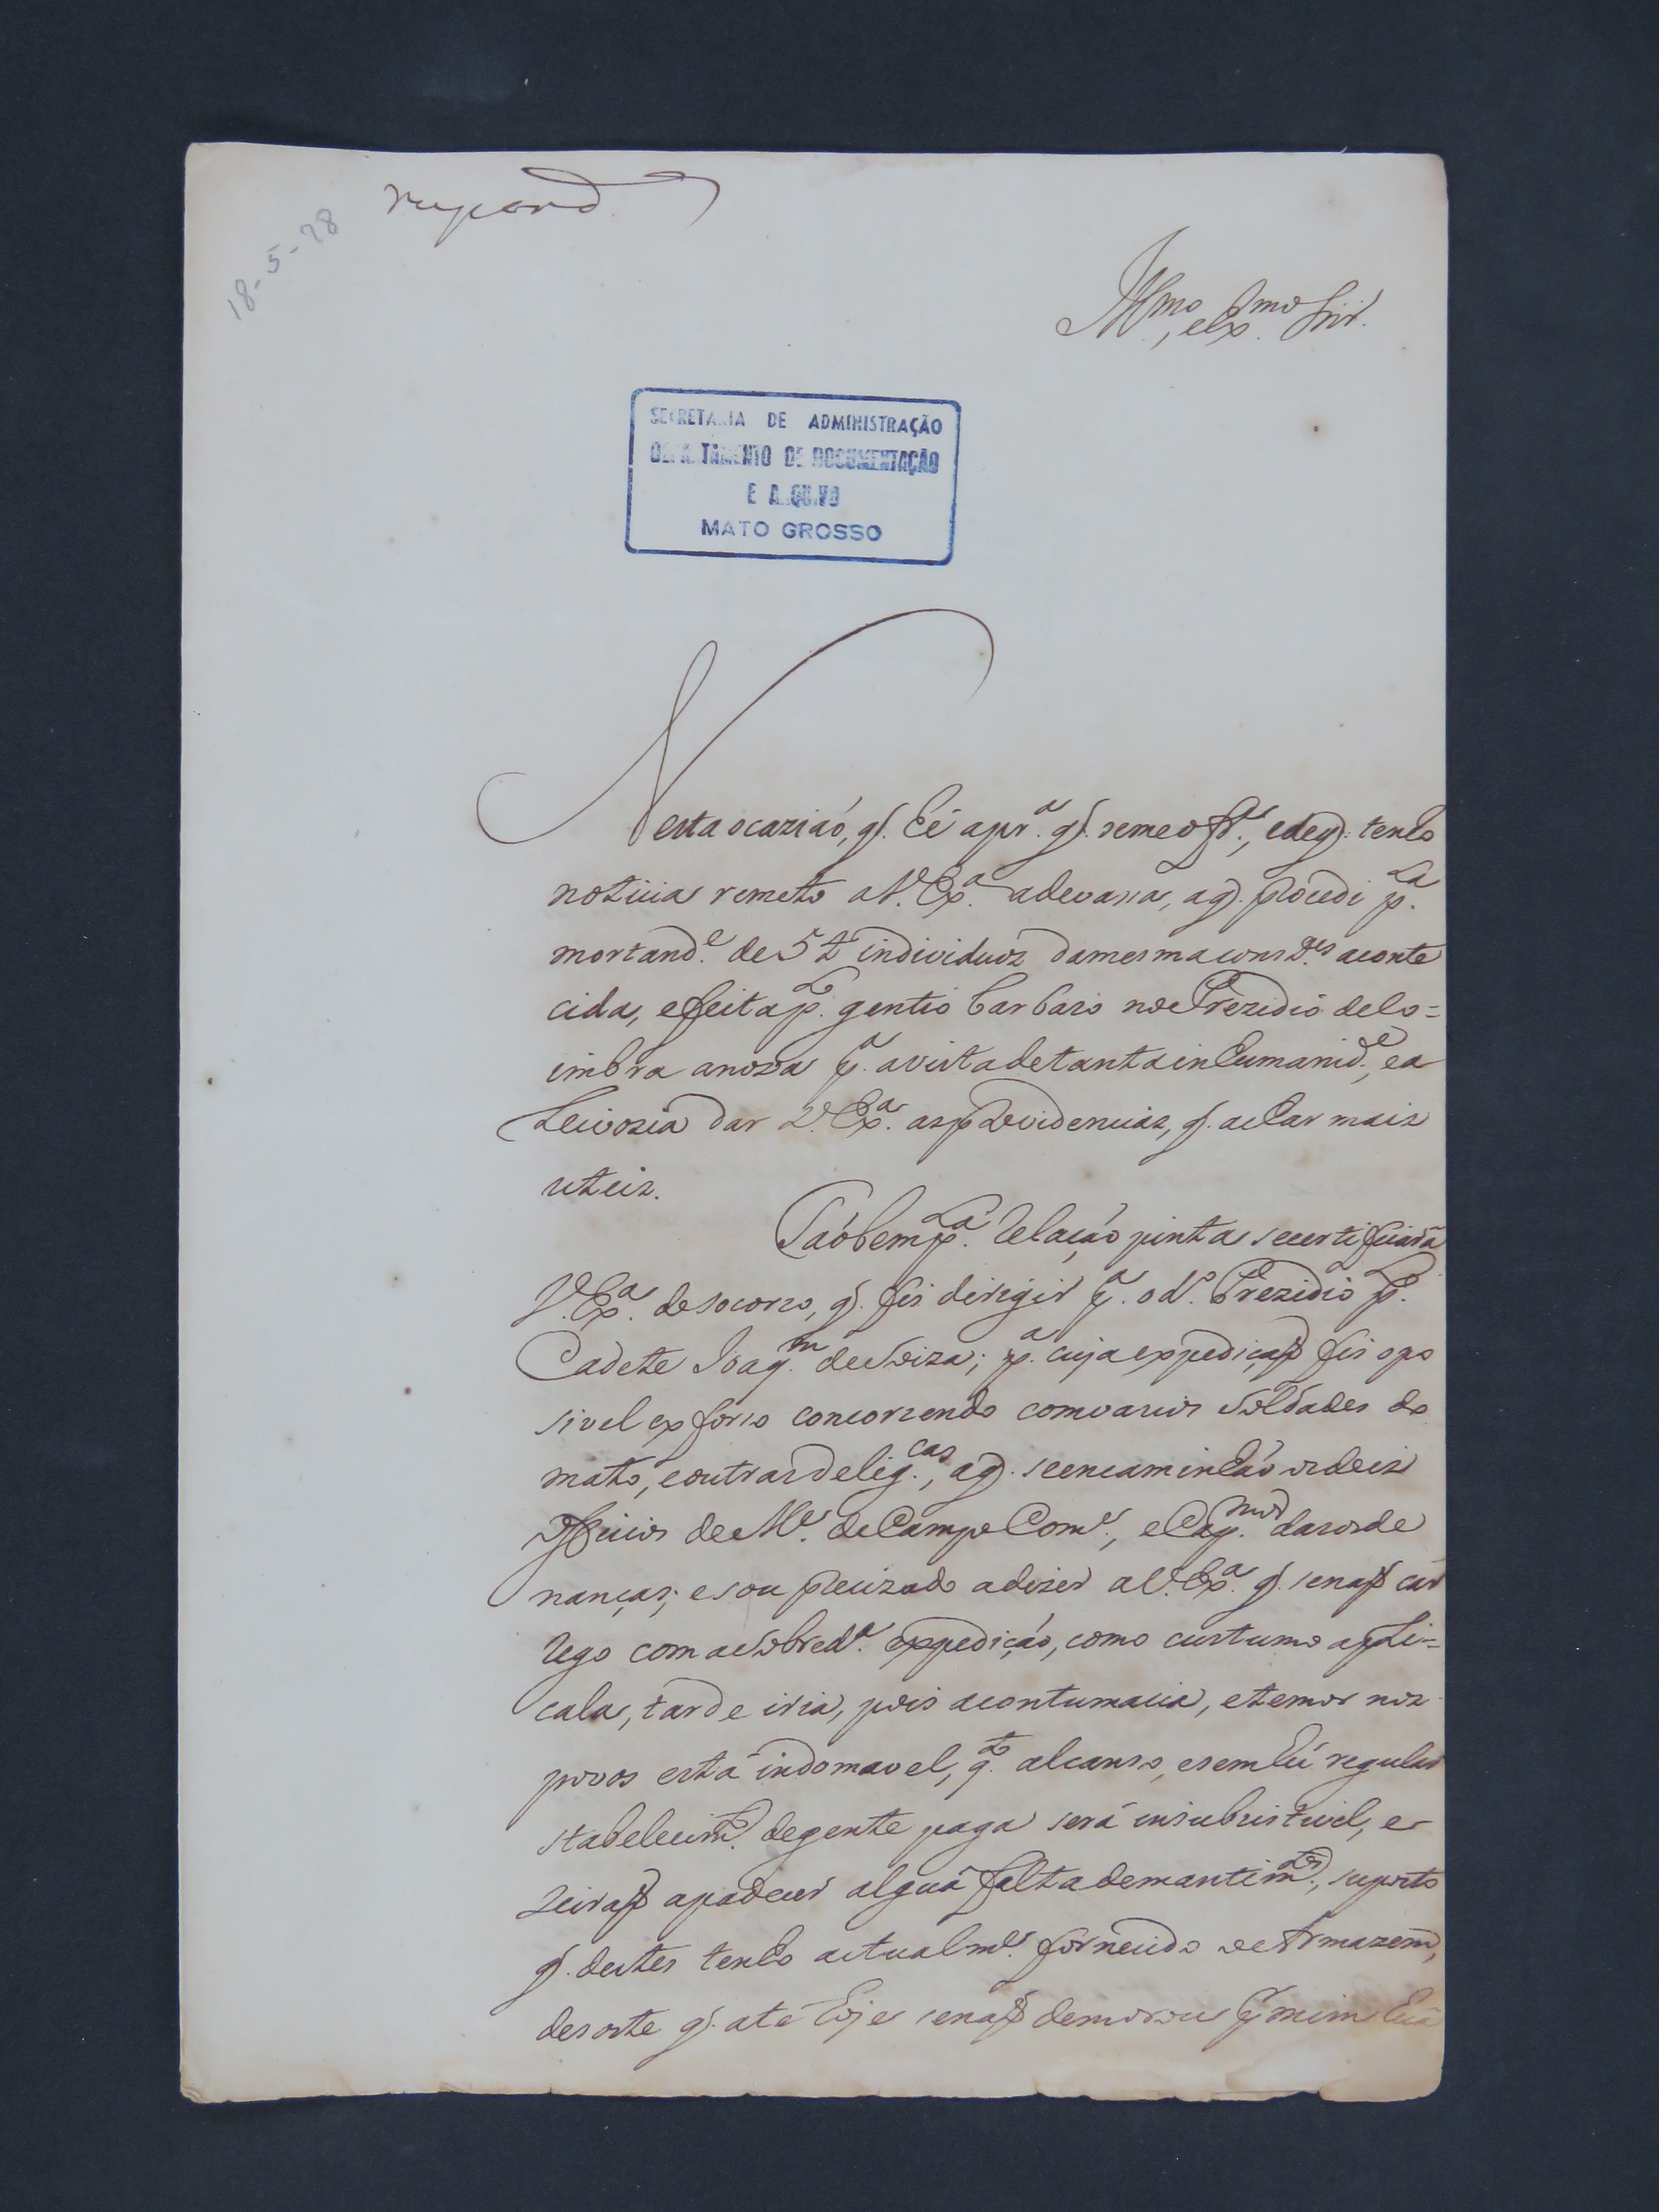 respond.
18-5-78
Ill.mo, e Ex.mo Snr.
SECRETARIA DE ADMINISTRAÇÃO
DEPARTAMENTO DE DOCUMENTAÇÃO
E ARQUIVO
MATO GROSSO
Nesta ocazião, q. hé a pr.a q. se me of.e, e de q. tenho
noticia remeto a V. Ex.a a devassa, a q. procedi p.la
mortand.e de 54 individuos da mesma aconte
cida, e feita p.lo gentio barbaro no Prezidio de Co=
imbra a nova p.a a vista de tanta inhumanid.e, e a
leivozia dar V. Ex.a as providencias, q. achar mais
uteis.
Tãobem p.la Relação junta se certificará
V. Ex.a do socorro, q. fis dirigir p.a o d.o Prezidio p.lo
Cadete Joaq.m de Soiza; p.a cuja expedição fis o po
sivel exforso concorrendo com varios Soldados do
mato, e outras delig.cas, a q. se encaminhão os dois
Officios de M.e de Campo Com.e, e Cap. mor das orde
nanças; e sou precizado a dizer a V. Ex.a q. se não car
rego com a sobred.a expedição, como custumo apli=
cala, tarde iria, pois a contumacia, e temor nos
povos está indomavel, q.to alcanso, e sem hú regular
stabelecim.to de gente paga será insubsistivel, e
seirão a padecer algũa falta de mantim.tos, suposto
q. destes tenho actualm.e fornecido o Armazem,
de sorte q. até hoje se não demorou p.r mim hũa